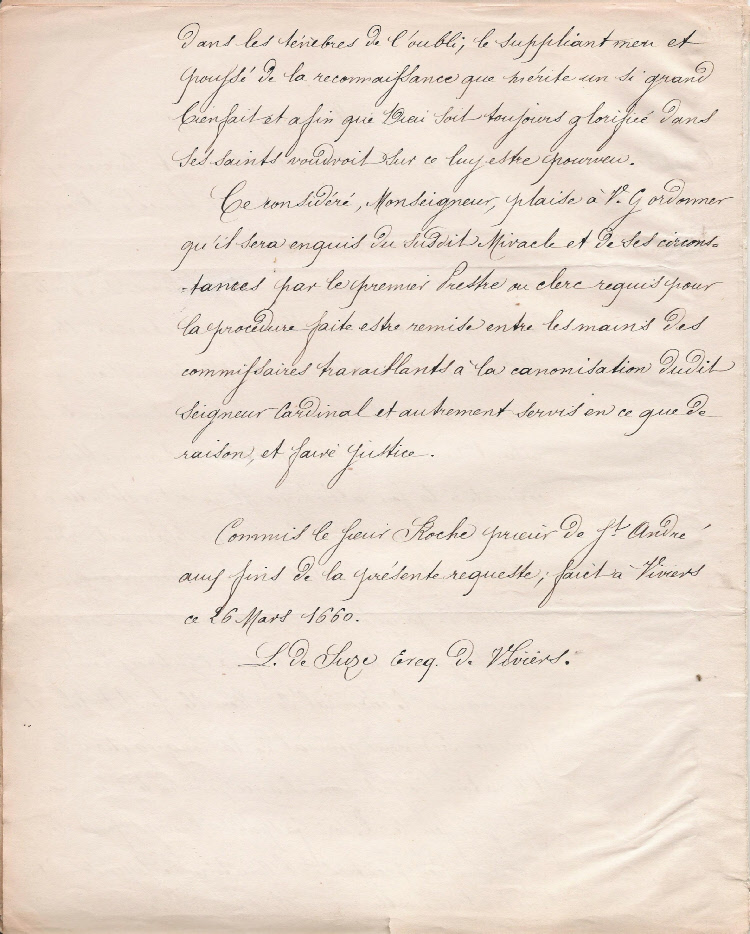 dans les ténèbres de l'oubli; le suppliant meu et
poussé de la reconnaissance que mérite un si grand
bienfait et afin que Dieu soit toujours glorifié dans
ses saints voudroit sur ce luy estre pourveu.
Ce considéré, Monseigneur, plaise à V. G. ordonner
qu'il sera enquis du susdit Miracle et de ses circons-
-tances par le premier Prestre ou clerc requis pour
la procédure faite estre remise entre les mains des
commissaires travaillants à la canonisation dudit
seigneur Cardinal et autrement servis en ce que de
raison, et faire justice.
Commis le sieur Roche prieur de St. André
aux fins de la présente requeste; faict à Viviers
ce 26 Mars 1660.
L. de Suze Eveq. de Viviers.